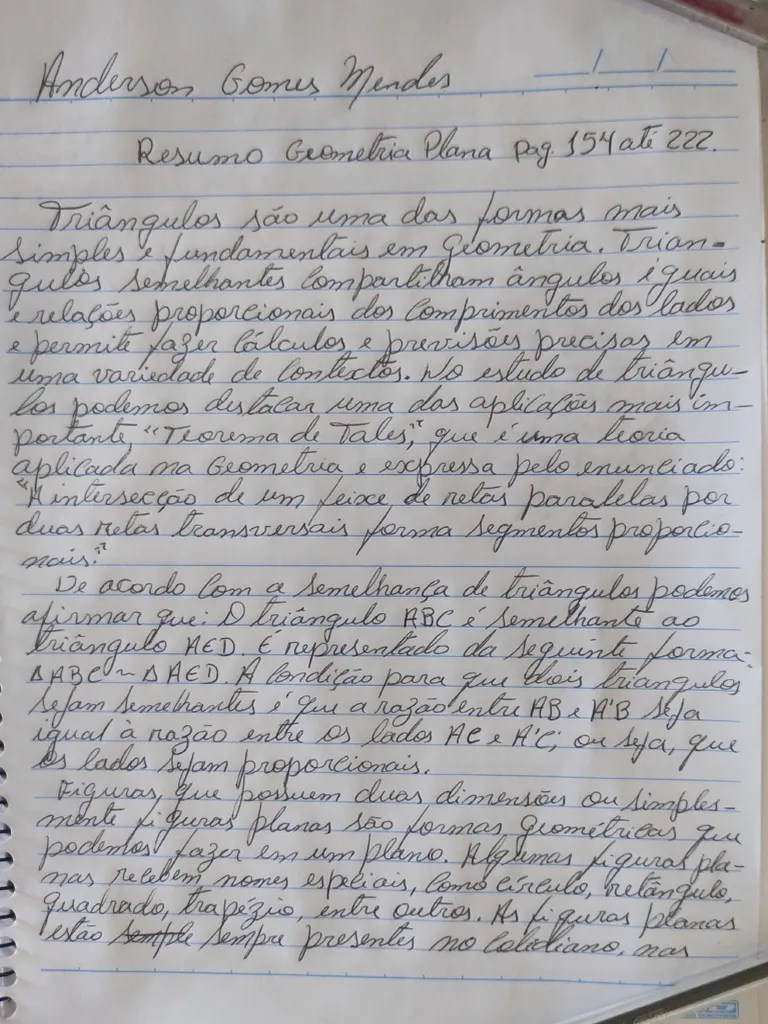 Anderson Gomes Mendes
Resumo Geometria Plana pag. 154 até 222.
Triângulos são uma das formas mais
simples e fundamentais em Geometria. Trian-
gulos semelhantes compartilham ângulos iguais
e relações proporcionais dos comprimentos dos lados
e permite fazer cálculos e previsões precisas em
uma variedade de contextos. No estudo de triângu-
los podemos destacar uma das aplicações mais im-
portante, "Teorema de Tales", que é uma teoria
aplicada na Geometria e expressa pelo enunciado:
"A intersecção de um feixe de retas paralelas por
duas retas transversais forma segmentos proporcio-
nais."
De acordo com a semelhança de triângulos podemos
afirmar que: O triângulo ABC é semelhante ao
triângulo AED. É representado da seguinte forma:
∆ABC ~ ∆AED. A condição para que dois triangulos
sejam semelhantes é que a razão entre AB e A'B seja
igual à razão entre os lados AC e A'C; ou seja, que
os lados sejam proporcionais.
Figuras, que possuem duas dimensões ou simples-
mente figuras planas são formas geométricas que
podemos fazer em um plano. Algumas figuras pla-
nas recebem nomes especiais, como círculo, retângulo,
quadrado, trapézio, entre outros. As figuras planas
estão sempre presentes no cotidiano, nas